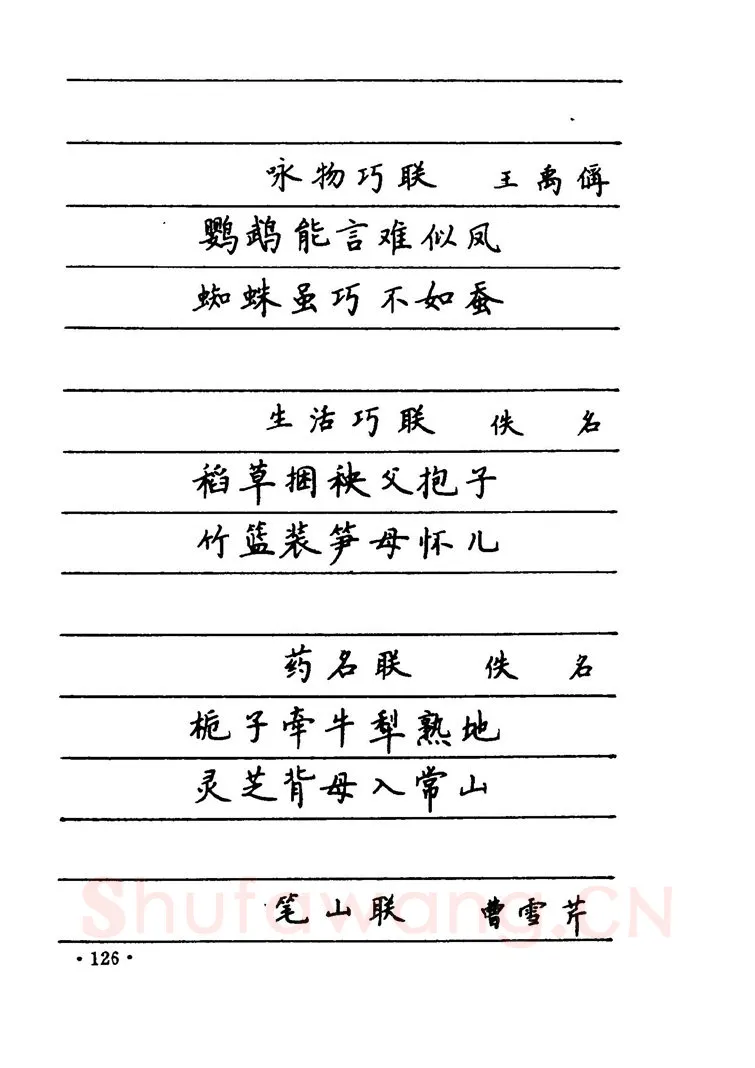 咏物巧联 王禹偁
鹦鹉能言难似凤
蜘蛛虽巧不如蚕
生活巧联 佚名
稻草捆秧父抱子
竹篮装笋母怀儿
药名联 佚名
栀子牵牛犁熟地
灵芝背母入常山
笔山联 曹雪芹
Shufawang.CN
·126·